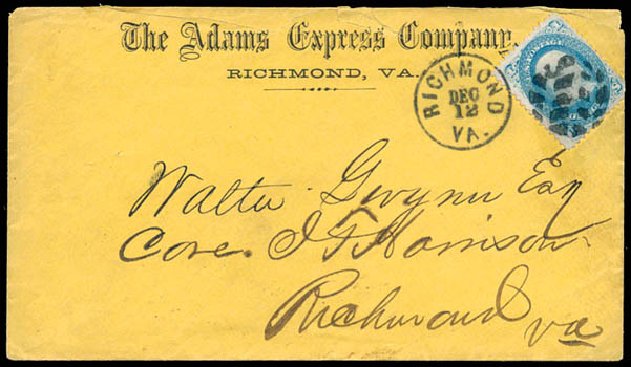 The Adams Express Company,
RICHMOND, VA.
RICHMOND
DEC
12
VA.
Walter Gwynn Esq
Care. J F Harrison
Richmond Va